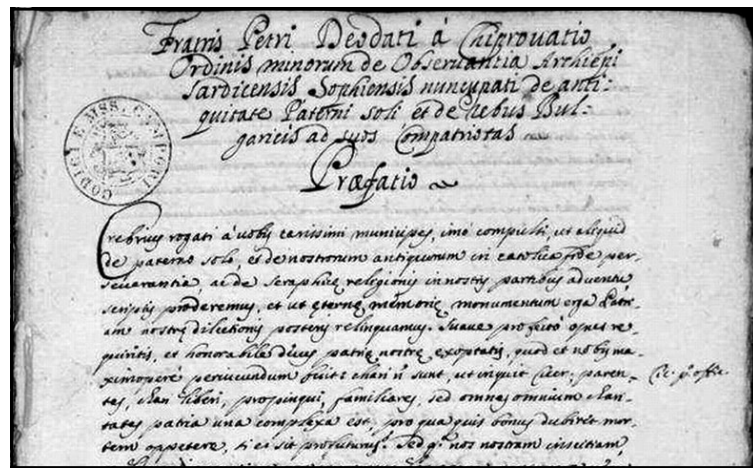 Fratris Petri Deodati á Chiprovatio
Ordinis minorum de Observantia Archiepi
Sardicensis Sophiensis nuncupati de anti:
quitate Paterni soli et de rebus Bul-
garicis ad suos Compatriotas
CODICI E MSS. CAMPORI
Præfatio
Crebrius rogati á vobis carissimi municipes, imó compulsi, ut aliquid
de paterno solo, et de nostrorum antiquorum in catolica fide per-
severantia, ac de seraphicę religionis in nostris partibus adventu
scriptis proderemus, et ut ęternę memorię monumentum erga Patri-
am nostrę dilectionis posteris relinquamus. Suave profecto opus re-
quiritis, et honorabile decus patrię nostrę exoptatis, quod et nobis ma-
ximoperé periucundum fuit: chari n. sunt, ut inquit Cicer. paren-
tes, chari liberi, propinqui, familiares, sed omnes omnium chari-
Cic. p.º offic.
tates patria una complexa est, pro qua quis bonus dubitet mor-
tem oppetere, si ei sit profuturus? Sed q. nos nostram inscitiam,